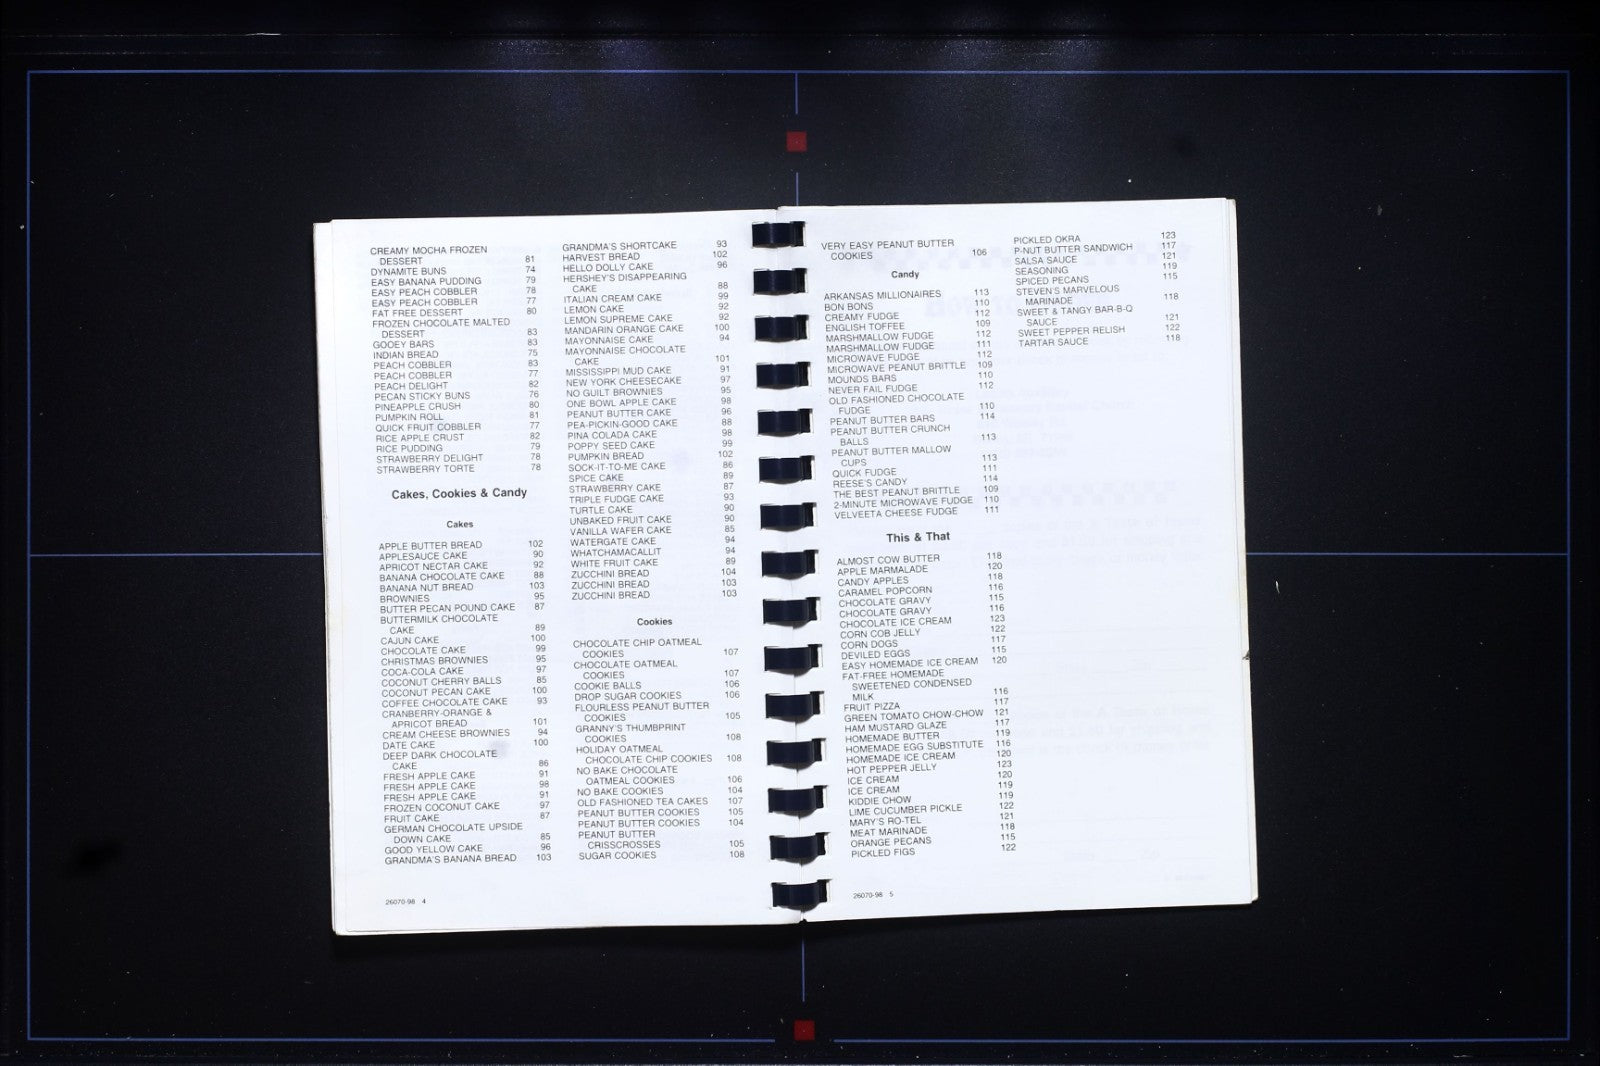 CREAMY MOCHA FROZEN
DESSERT 81
DYNAMITE BUNS 74
EASY BANANA PUDDING 79
EASY PEACH COBBLER 78
EASY PEACH COBBLER 77
FAT FREE DESSERT 80
FROZEN CHOCOLATE MALTED
DESSERT 83
GOOEY BARS 83
INDIAN BREAD 75
PEACH COBBLER 83
PEACH COBBLER 77
PEACH DELIGHT 82
PECAN STICKY BUNS 76
PINEAPPLE CRUSH 80
PUMPKIN ROLL 81
QUICK FRUIT COBBLER 77
RICE APPLE CRUST 82
RICE PUDDING 79
STRAWBERRY DELIGHT 78
STRAWBERRY TORTE 78
Cakes, Cookies & Candy
Cakes
APPLE BUTTER BREAD 102
APPLESAUCE CAKE 90
APRICOT NECTAR CAKE 92
BANANA CHOCOLATE CAKE 88
BANANA NUT BREAD 103
BROWNIES 95
BUTTER PECAN POUND CAKE 87
BUTTERMILK CHOCOLATE
CAKE 89
CAJUN CAKE 100
CHOCOLATE CAKE 99
CHRISTMAS BROWNIES 95
COCA-COLA CAKE 97
COCONUT CHERRY BALLS 85
COCONUT PECAN CAKE 100
COFFEE CHOCOLATE CAKE 93
CRANBERRY-ORANGE &
APRICOT BREAD 101
CREAM CHEESE BROWNIES 94
DATE CAKE 100
DEEP DARK CHOCOLATE
CAKE 86
FRESH APPLE CAKE 91
FRESH APPLE CAKE 98
FRESH APPLE CAKE 91
FROZEN COCONUT CAKE 97
FRUIT CAKE 87
GERMAN CHOCOLATE UPSIDE
DOWN CAKE 85
GOOD YELLOW CAKE 96
GRANDMA'S BANANA BREAD 103
GRANDMA'S SHORTCAKE 93
HARVEST BREAD 102
HELLO DOLLY CAKE 96
HERSHEY'S DISAPPEARING
CAKE 88
ITALIAN CREAM CAKE 99
LEMON CAKE 92
LEMON SUPREME CAKE 92
MANDARIN ORANGE CAKE 100
MAYONNAISE CAKE 94
MAYONNAISE CHOCOLATE
CAKE 101
MISSISSIPPI MUD CAKE 91
NEW YORK CHEESECAKE 97
NO GUILT BROWNIES 95
ONE BOWL APPLE CAKE 98
PEANUT BUTTER CAKE 96
PEA-PICKIN-GOOD CAKE 88
PINA COLADA CAKE 98
POPPY SEED CAKE 99
PUMPKIN BREAD 102
SOCK-IT-TO-ME CAKE 86
SPICE CAKE 89
STRAWBERRY CAKE 87
TRIPLE FUDGE CAKE 93
TURTLE CAKE 90
UNBAKED FRUIT CAKE 90
VANILLA WAFER CAKE 85
WATERGATE CAKE 94
WHATCHAMACALLIT 94
WHITE FRUIT CAKE 89
ZUCCHINI BREAD 104
ZUCCHINI BREAD 103
ZUCCHINI BREAD 103
Cookies
CHOCOLATE CHIP OATMEAL
COOKIES 107
CHOCOLATE OATMEAL
COOKIES 107
COOKIE BALLS 106
DROP SUGAR COOKIES 106
FLOURLESS PEANUT BUTTER
COOKIES 105
GRANNY'S THUMBPRINT
COOKIES 108
HOLIDAY OATMEAL
CHOCOLATE CHIP COOKIES 108
NO BAKE CHOCOLATE
OATMEAL COOKIES 106
NO BAKE COOKIES 104
OLD FASHIONED TEA CAKES 107
PEANUT BUTTER COOKIES 105
PEANUT BUTTER COOKIES 104
PEANUT BUTTER
CRISSCROSSES 105
SUGAR COOKIES 108
26070-98 4
VERY EASY PEANUT BUTTER
COOKIES 106
Candy
ARKANSAS MILLIONAIRES 113
BON BONS 110
CREAMY FUDGE 112
ENGLISH TOFFEE 109
MARSHMALLOW FUDGE 112
MARSHMALLOW FUDGE 111
MICROWAVE FUDGE 112
MICROWAVE PEANUT BRITTLE 109
MOUNDS BARS 110
NEVER FAIL FUDGE 112
OLD FASHIONED CHOCOLATE
FUDGE 110
PEANUT BUTTER BARS 114
PEANUT BUTTER CRUNCH
BALLS 113
PEANUT BUTTER MALLOW
CUPS 113
QUICK FUDGE 111
REESE'S CANDY 114
THE BEST PEANUT BRITTLE 109
2-MINUTE MICROWAVE FUDGE 110
VELVEETA CHEESE FUDGE 111
This & That
ALMOST COW BUTTER 118
APPLE MARMALADE 120
CANDY APPLES 118
CARAMEL POPCORN 116
CHOCOLATE GRAVY 115
CHOCOLATE GRAVY 116
CHOCOLATE ICE CREAM 123
CORN COB JELLY 122
CORN DOGS 117
DEVILED EGGS 115
EASY HOMEMADE ICE CREAM 120
FAT-FREE HOMEMADE
SWEETENED CONDENSED
MILK 116
FRUIT PIZZA 117
GREEN TOMATO CHOW-CHOW 121
HAM MUSTARD GLAZE 117
HOMEMADE BUTTER 119
HOMEMADE EGG SUBSTITUTE 116
HOMEMADE ICE CREAM 120
HOT PEPPER JELLY 123
ICE CREAM 120
ICE CREAM 119
KIDDIE CHOW 119
LIME CUCUMBER PICKLE 122
MARY'S RO-TEL 121
MEAT MARINADE 118
ORANGE PECANS 115
PICKLED FIGS 122
PICKLED OKRA 123
P-NUT BUTTER SANDWICH 117
SALSA SAUCE 121
SEASONING 119
SPICED PECANS 115
STEVEN'S MARVELOUS
MARINADE 118
SWEET & TANGY BAR-B-Q
SAUCE 121
SWEET PEPPER RELISH 122
TARTAR SAUCE 118
26070-98 5